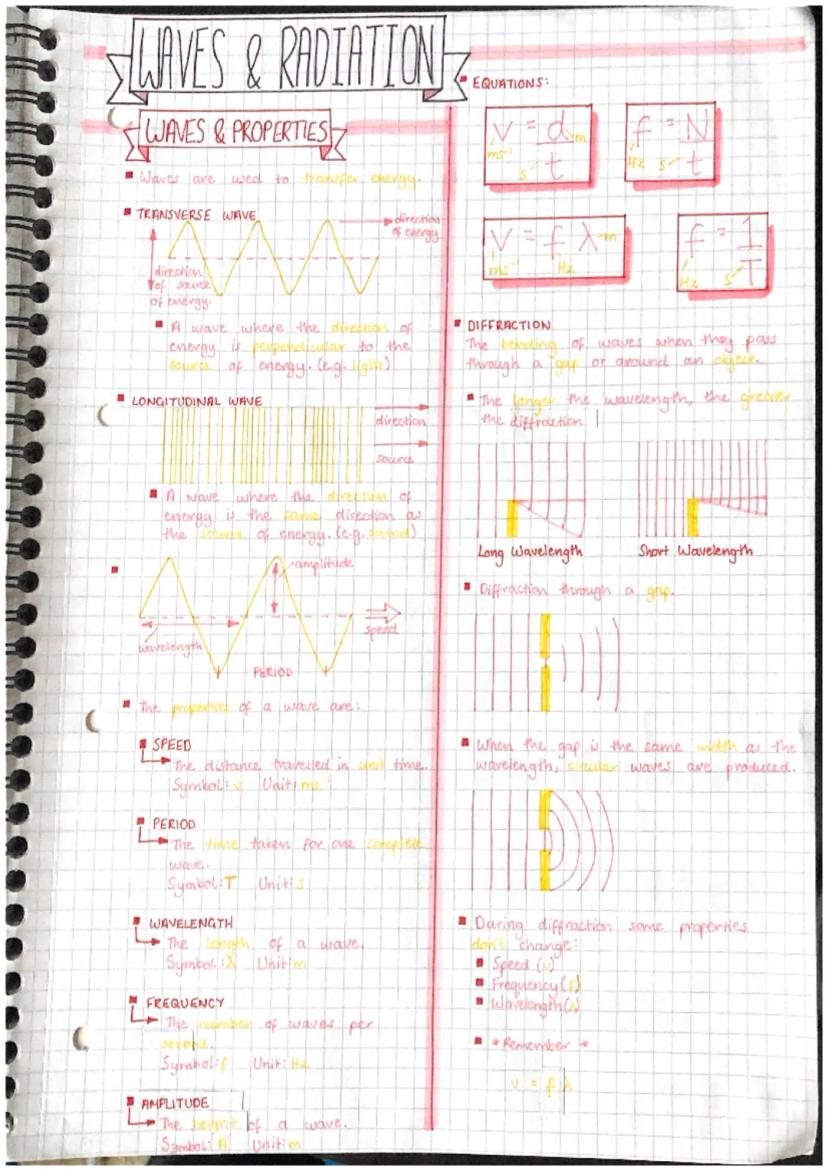 WAVES & RADIATION
WAVES & PROPERTIES
Waves are used to transfer energy.
TRANSVERSE WAVE
direction
of energy
direction
of source
of energy.
A wave where the direction of
energy is perpendicular to the
source of energy. (e.g. light)
LONGITUDINAL WAVE
direction
source
A wave where the direction of
energy is the same direction as
the source of energy. (e.g. sound)
amplitude
wavelength
speed
PERIOD
The properties of a wave are:
SPEED
The distance travelled in unit time.
Symbol: v Unit: ms⁻¹
PERIOD
The time taken for one complete
wave.
Symbol: T Unit: s
WAVELENGTH
The length of a wave.
Symbol: λ Unit: m
FREQUENCY
The number of waves per
second.
Symbol: f Unit: Hz
AMPLITUDE
The height of a wave.
Symbol: A Unit: m
EQUATIONS:
v = d/t
m
ms⁻¹
s
f = N/t
Hz
s
v = f λ
m
ms⁻¹
Hz
f = 1/T
Hz
s
DIFFRACTION
The bending of waves when they pass
through a gap or around an object.
The longer the wavelength, the greater
the diffraction.
Long Wavelength
Short Wavelength
Diffraction through a gap.
When the gap is the same width as the
wavelength, circular waves are produced.
During diffraction some properties
don't change:
Speed (v)
Frequency (f)
Wavelength (λ)
* Remember *
v = f λ